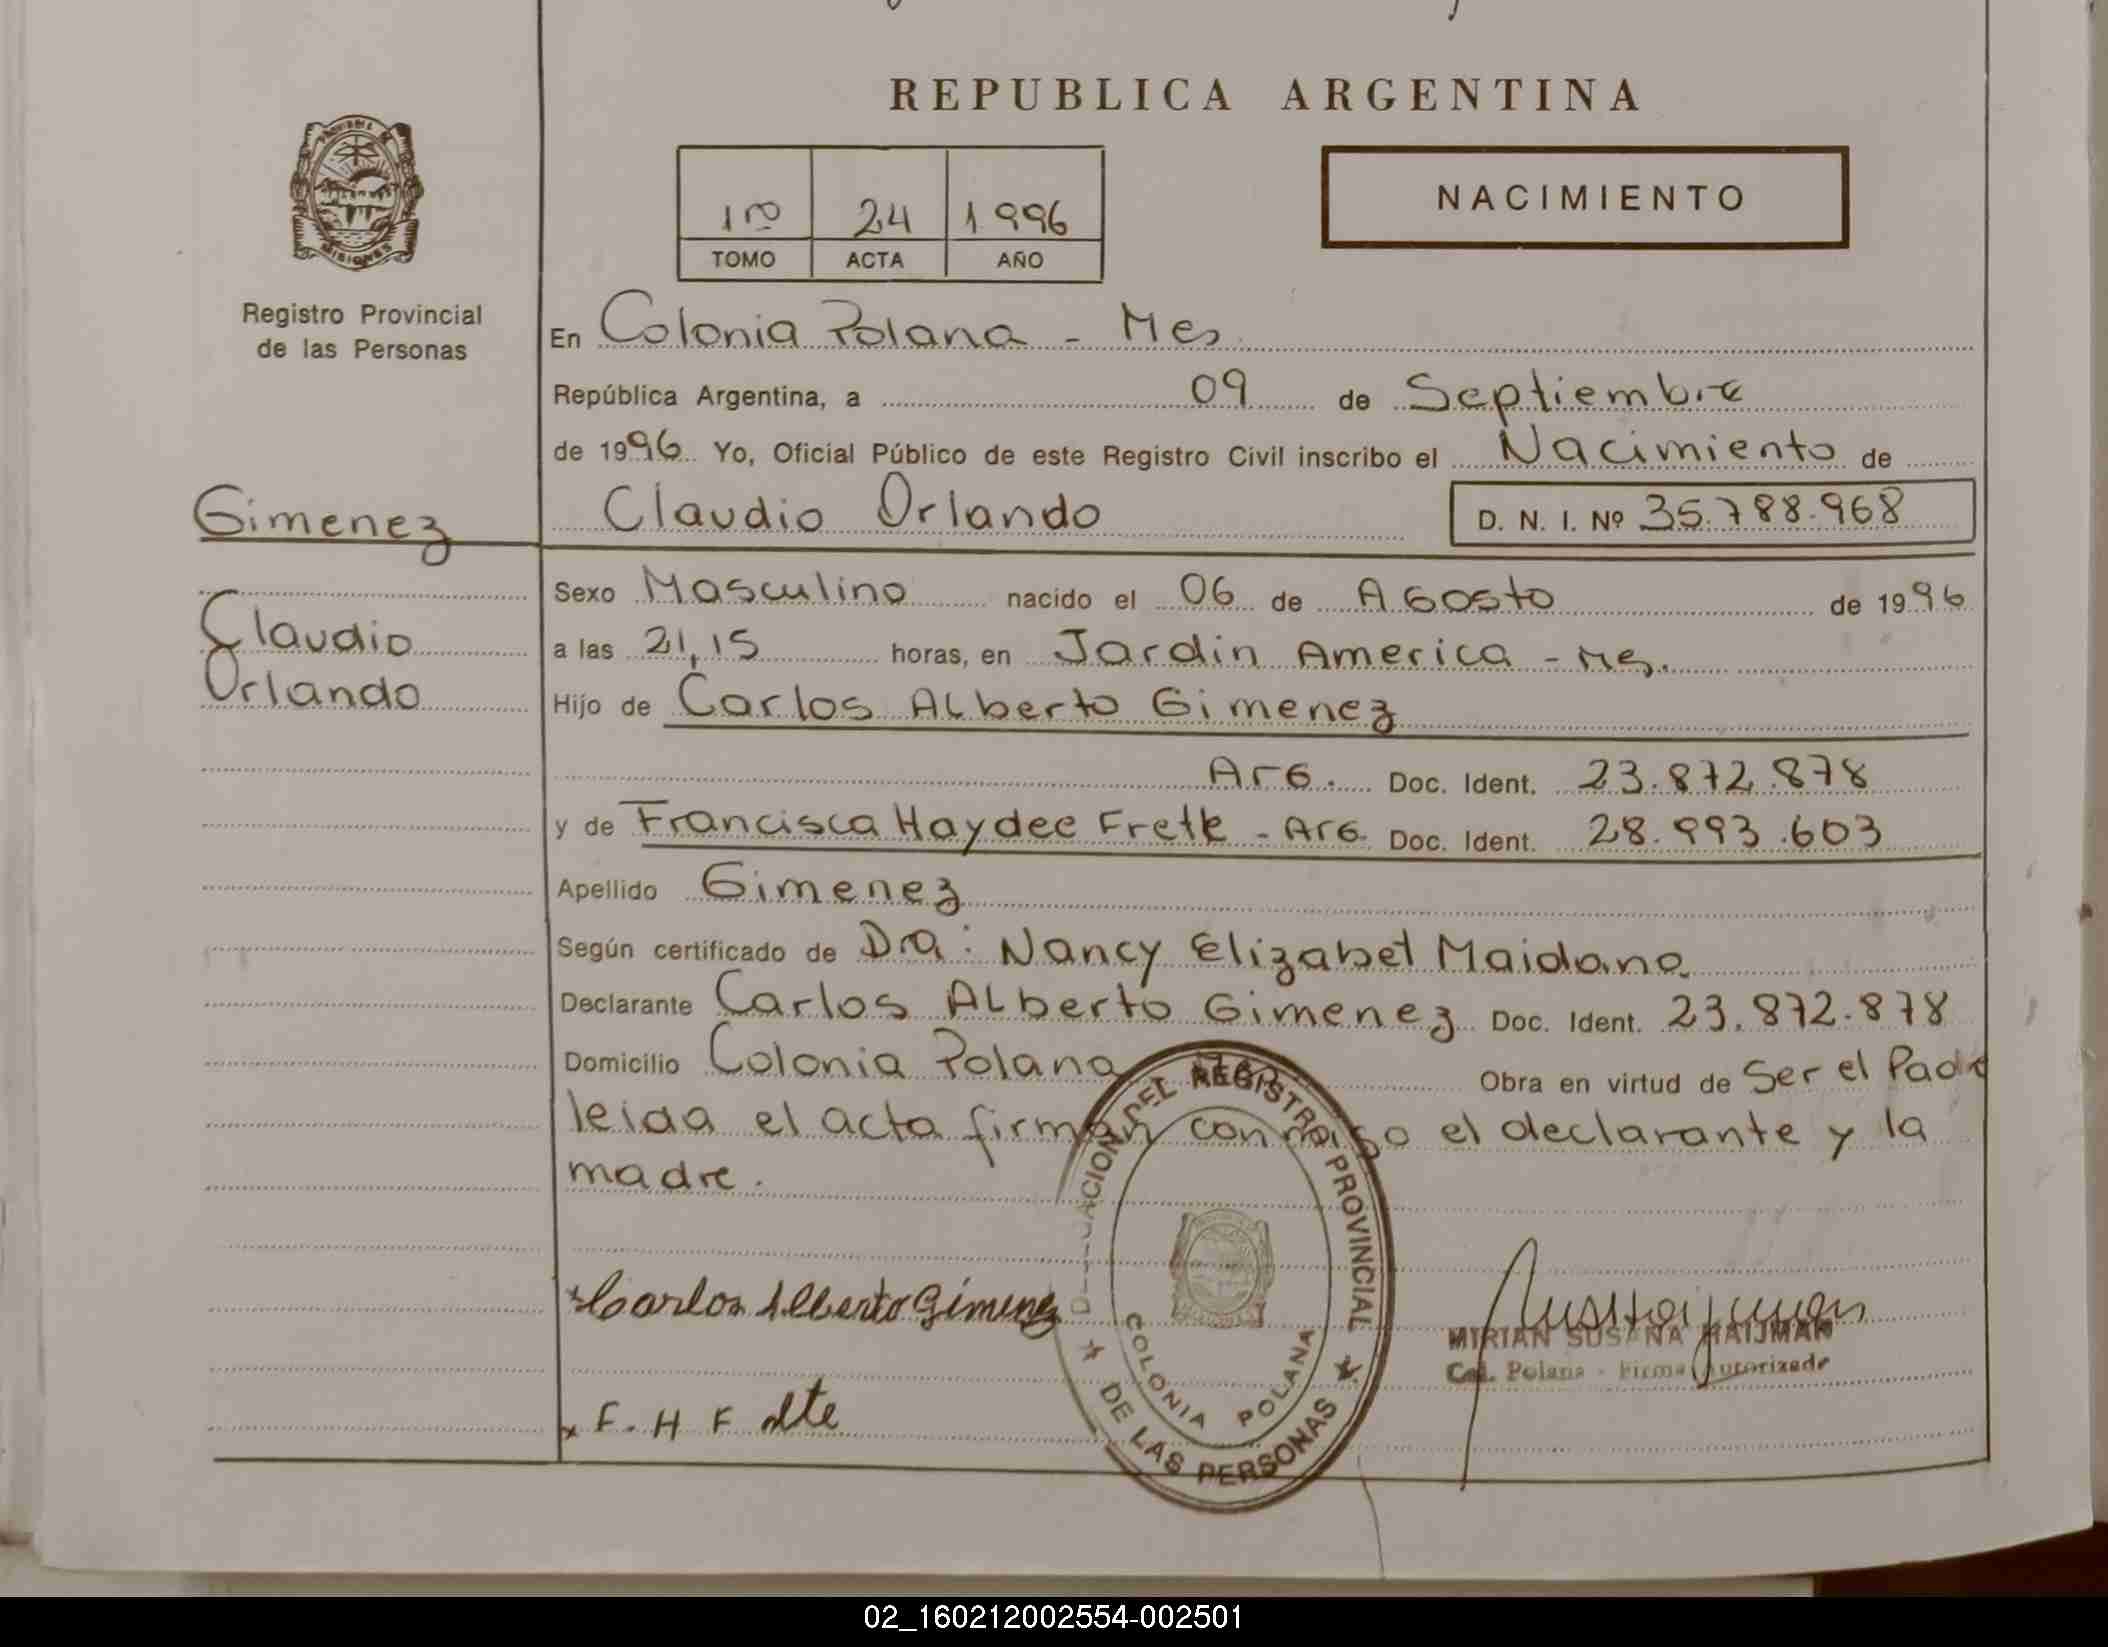 REPUBLICA ARGENTINA
PROVINCIA DE MISIONES
1ro 24 1996
TOMO ACTA AÑO
NACIMIENTO
Registro Provincial
de las Personas
En Colonia Polana - Mes
República Argentina, a 09 de Septiembre
de 1996 Yo, Oficial Público de este Registro Civil inscribo el Nacimiento de
Gimenez Claudio Orlando D. N. I. Nº 35.788.968
Sexo Masculino nacido el 06 de Agosto de 1996
Claudio a las 21,15 horas, en Jardin America - Mes.
Orlando Hijo de Carlos Alberto Gimenez
Arg. Doc. Ident. 23.872.878
y de Francisca Haydee Frete - Arg. Doc. Ident. 28.993.603
Apellido Gimenez
Según certificado de Dra: Nancy Elizabet Maidana
Declarante Carlos Alberto Gimenez Doc. Ident. 23.872.878
Domicilio Colonia Polana Obra en virtud de Ser el Padre
leida el acta firman conmigo el declarante y la
madre.
Carlos Alberto Gimenez
F. H F
DEL REGISTRO PROVINCIAL DE LAS PERSONAS
COLONIA POLANA
MIRIAN SUSANA HAIJMAN
Col. Polana - Firma Autorizada
02_160212002554-002501